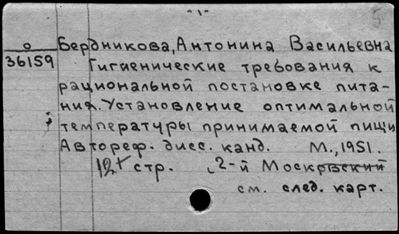 - 1 -
5
о
36159
Бердникова, Антонина Васильевна
Гигиенические требования к
рациональной постановке пита-
ния. Установление оптимальной
температуры принимаемой пищи
Автореф. дисс. канд. М., 1951.
12 стр. 2-й Московский
см. след. карт.